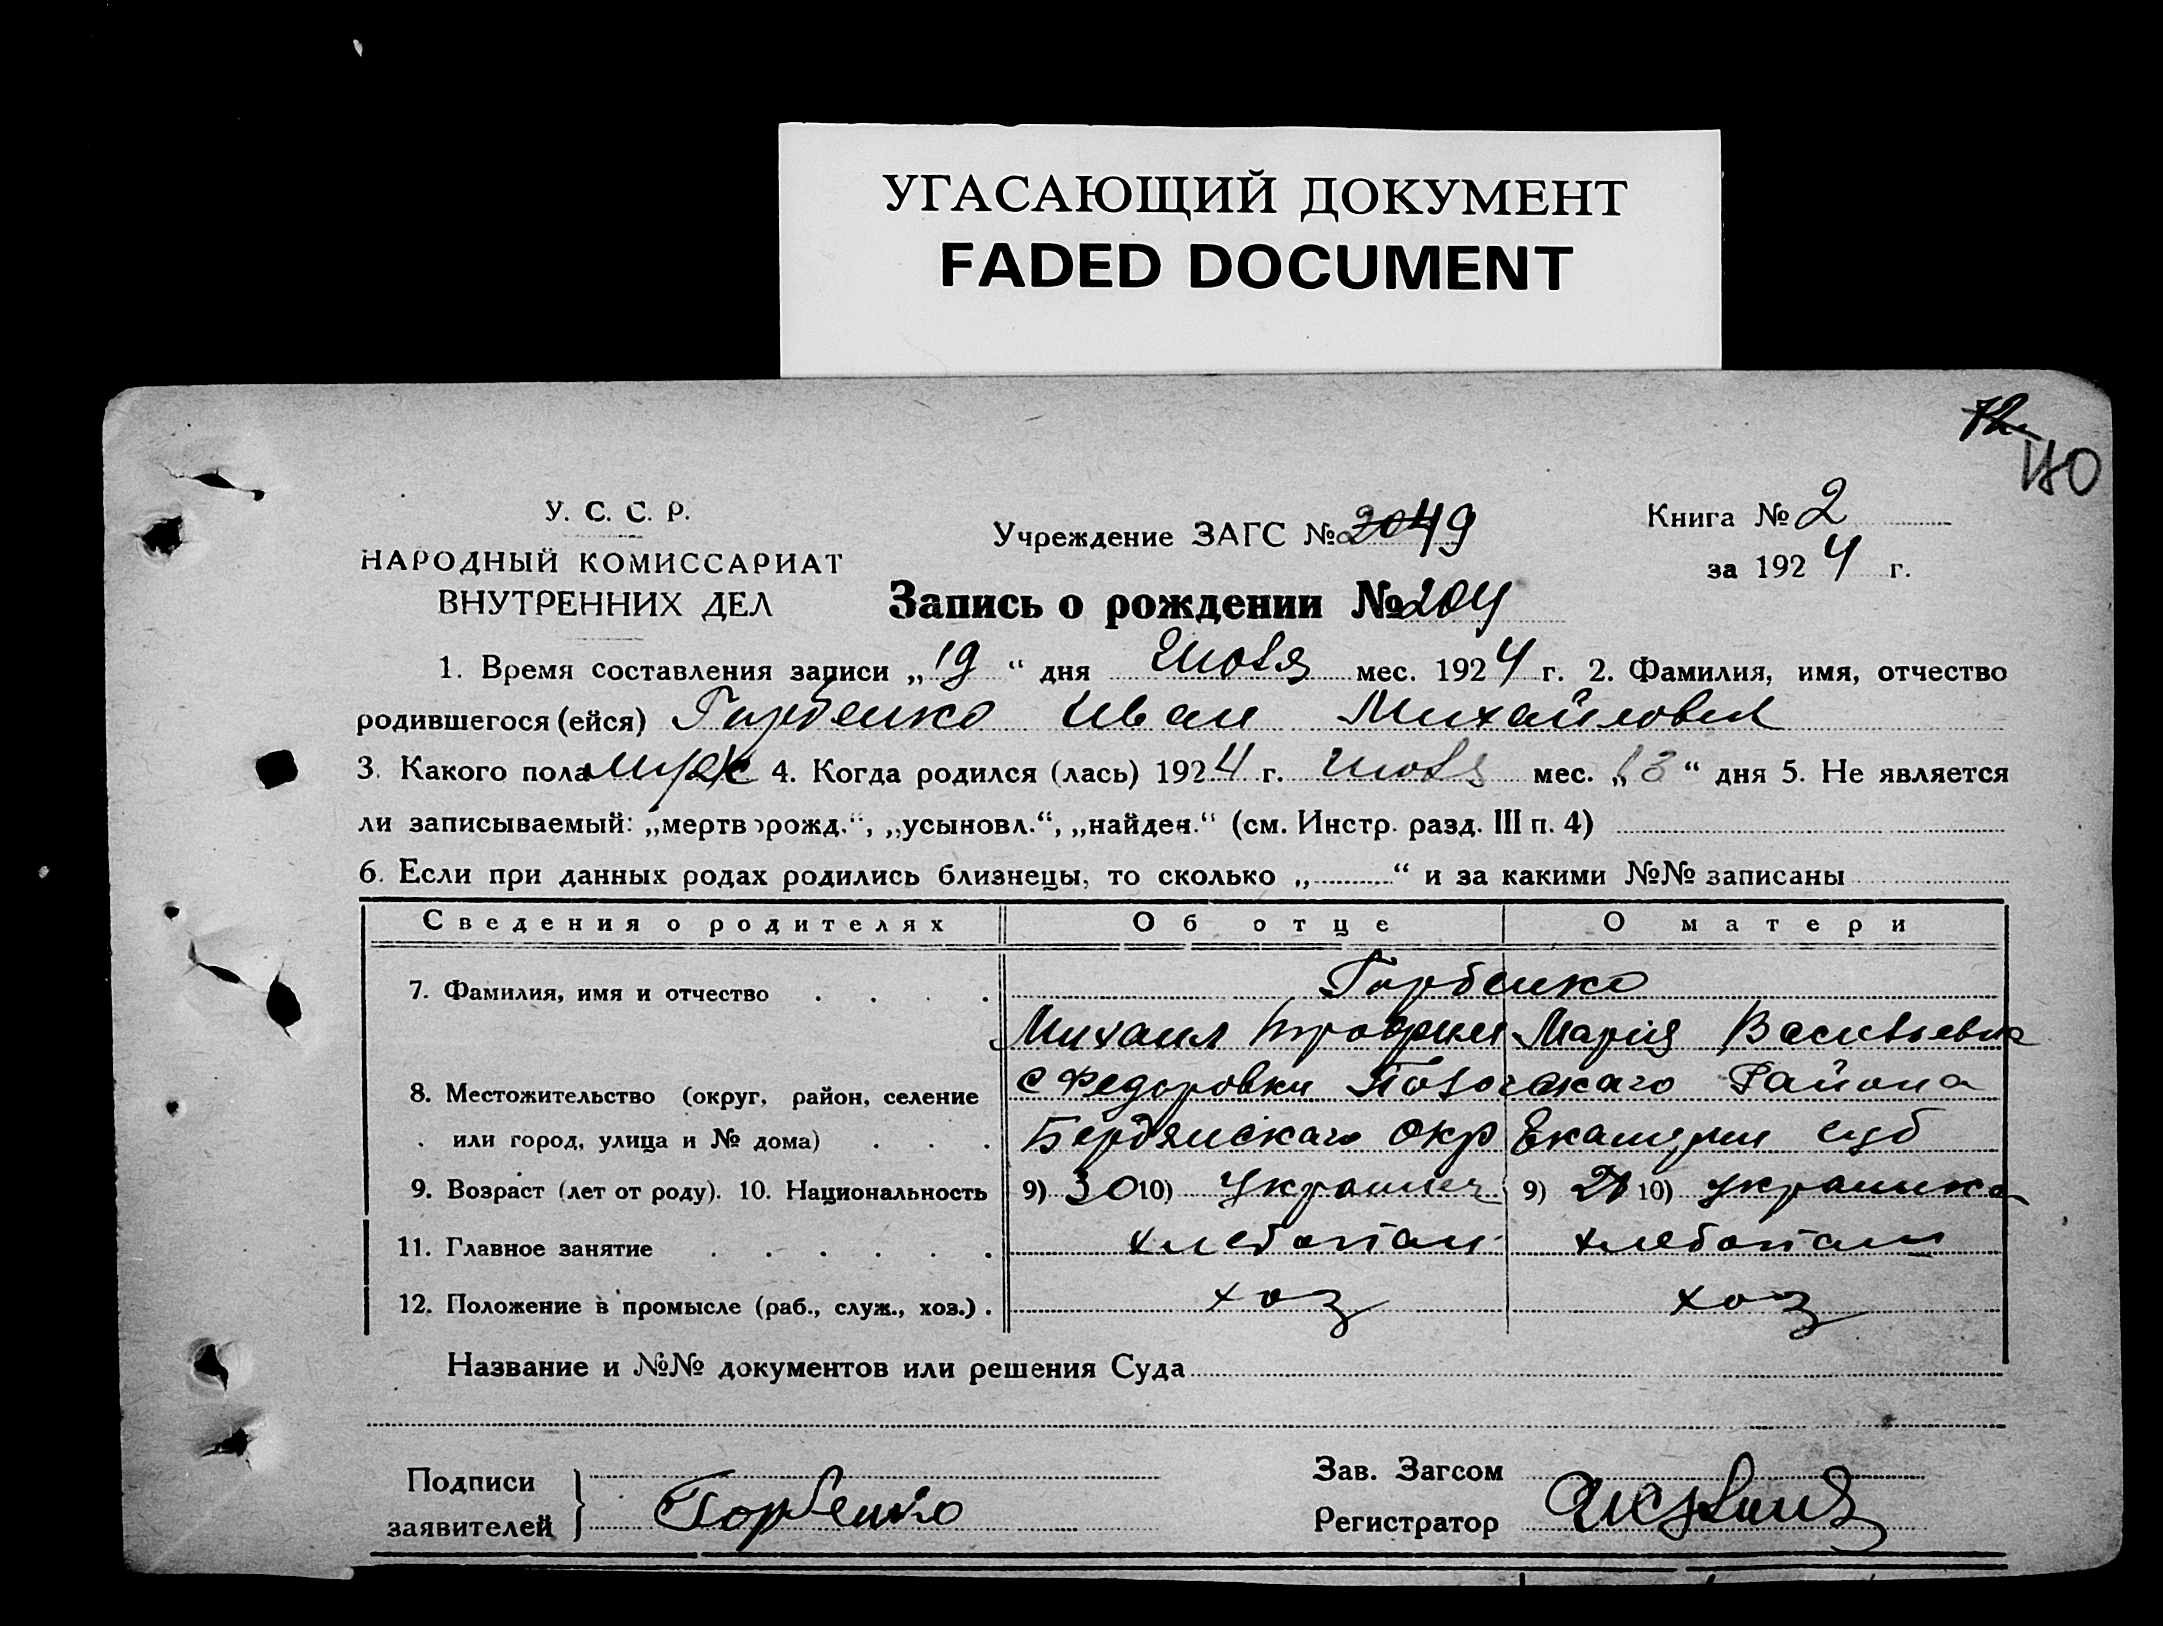 УГАСАЮЩИЙ ДОКУМЕНТ
FADED DOCUMENT
110
У. С. С. Р.
НАРОДНЫЙ КОМИССАРИАТ
ВНУТРЕННИХ ДЕЛ
Учреждение ЗАГС № 49
Книга № 2
за 1924 г.
Запись о рождении № 204
1. Время составления записи „19“ дня Июля мес. 1924 г. 2. Фамилия, имя, отчество
родившегося (ейся) Горбенко Иван Михайлович
3. Какого пола муж 4. Когда родился (лась) 1924 г. июля мес. „13“ дня 5. Не является
ли записываемый: „мертворожд.“, „усыновл.“, „найден.“ (см. Инстр. разд. III п. 4)
6. Если при данных родах родились близнецы, то сколько „ “ и за какими №№ записаны
Сведения о родителях Об отце О матери
7. Фамилия, имя и отчество Горбенко
Михаил Мария Васильевна
8. Местожительство (округ, район, селение с Федоровки Района
или город, улица и № дома) Бердянскаго Окр Екатерин губ
9. Возраст (лет от роду). 10. Национальность 9) 30 10) Украинец 9) 10) украинка
11. Главное занятие хлебопаш хлебопаш
12. Положение в промысле (раб., служ., хоз.) хоз хоз
Название и №№ документов или решения Суда
Подписи
заявителей Горбенко
Зав. Загсом
Регистратор